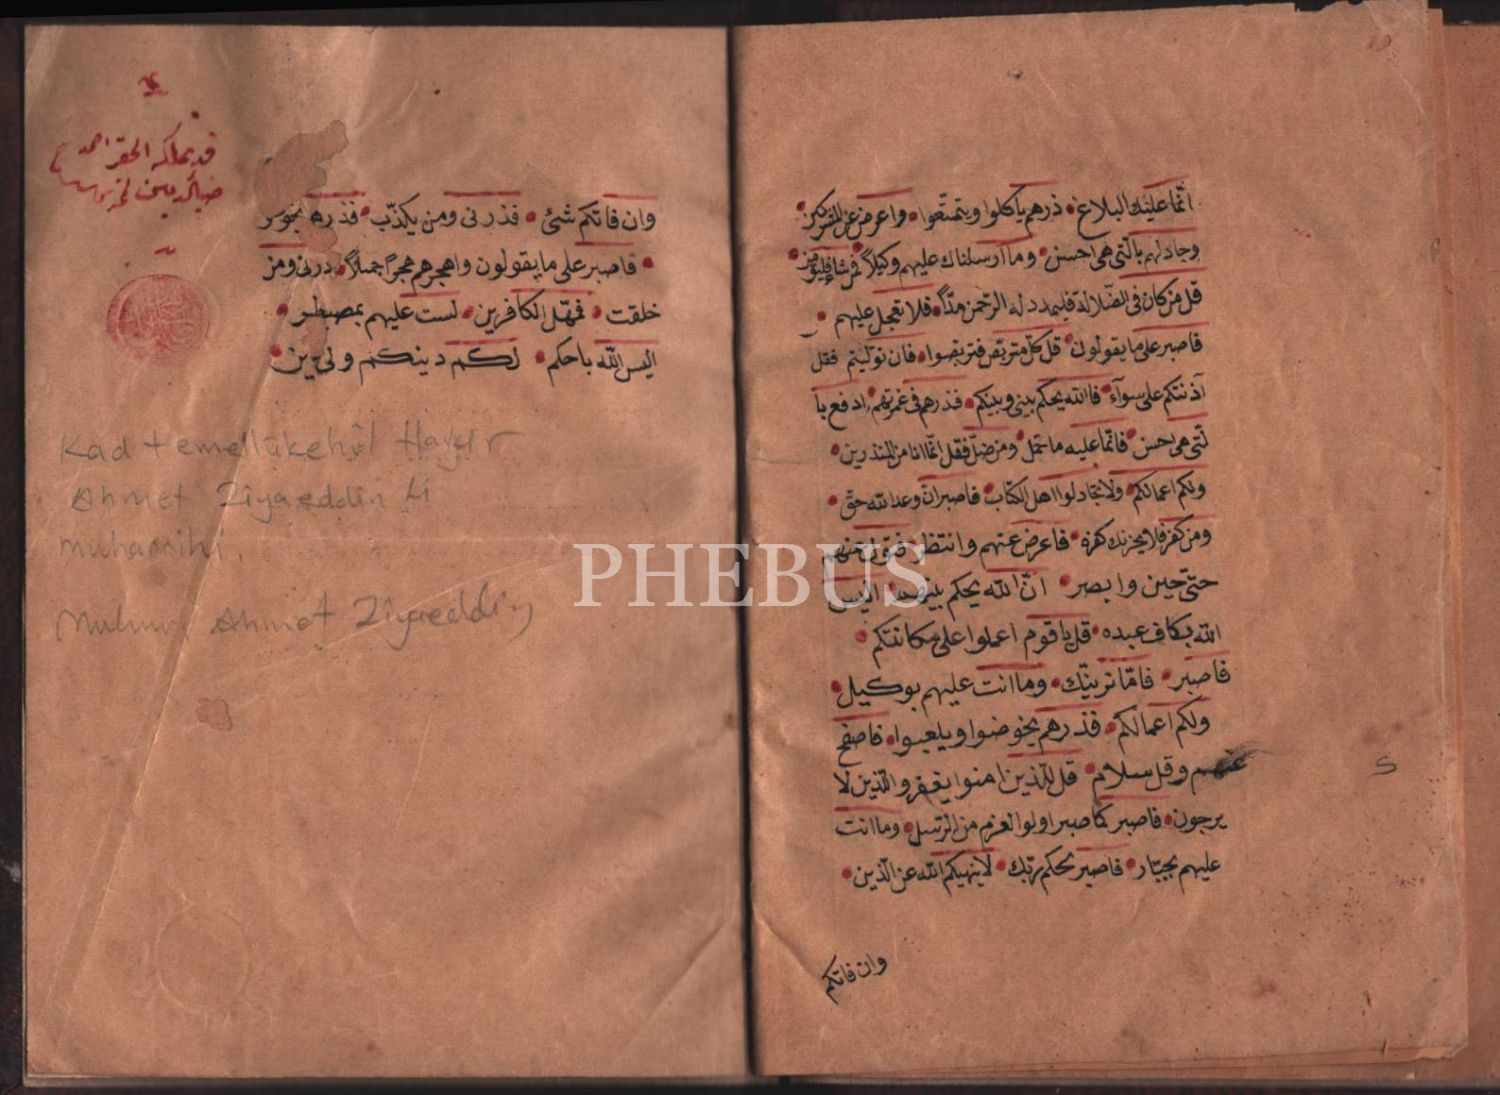 انما عليك البلاغ • ذرهم ياكلوا ويتمتعوا • واعرض عن المشركين
وجادلهم بالتي هي احسن • وما ارسلناك عليهم وكيلا فمن شاء فليؤمن
قل من كان في الضلالة فليمدد له الرحمن مدا • فلا تعجل عليهم •
فاصبر على ما يقولون • قل كل متربص فتربصوا • فان توليتم فقل
آذنتكم على سوآء • فاالله يحكم بيني وبينكم • فذرهم في غمرتهم • ادفع با
لتي هي احسن • فانما عليه ما حمل • ومن ضل فقل انما انا من المنذرين •
ولكم اعمالكم • ولا تجادلوا اهل الكتاب • فاصبر ان وعد الله حق •
ومن كفر فلا يحزنك كفره • فاعرض عنهم وانتظر • فتول عنهم
حتى حين وابصر • ان الله يحكم بينهم • اليس
الله بكاف عبده • قل يا قوم اعملوا على مكانتكم •
فاصبر • فاما نرينك • وما انت عليهم بوكيل •
ولكم اعمالكم • فذرهم يخوضوا ويلعبوا • فاصفح
عنهم وقل سلام • قل للذين امنوا يغفروا للذين لا
يرجون • فاصبر كما صبر اولوا العزم من الرسل • وما انت
عليهم بجبار • فاصبر لحكم ربك • لا ينهيكم الله عن الذين •
وان فاتكم
5
قد تملكه الحقير احمد
ضياء الدين
وان فاتكم شئ • فذرني ومن يكذب • فذرهم يخوضوا
• فاصبر على ما يقولون واهجرهم هجرا جميلا • ذرني ومن
خلقت • فمهل الكافرين • لست عليهم بمصيطر •
اليس الله باحكم • لكم دينكم ولي دين •
Kad temellükehûl Hayır
Ahmet Ziyaeddin Li
muharrihi.
Ahmet Ziyaeddin
PHEBUS